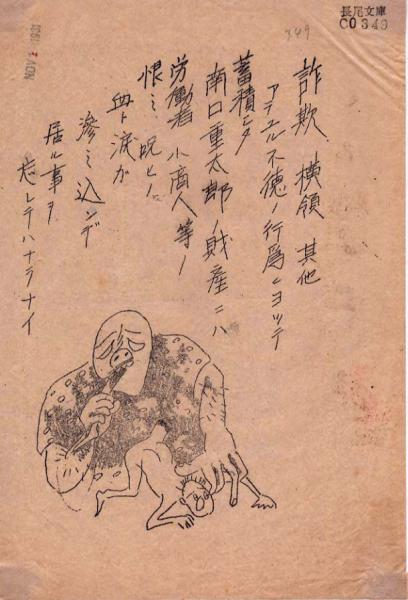 長尾文庫
CO 349
349
NOV 2 1931
詐欺 横領 其他
アラユル不徳ノ行為ニヨッテ
蓄積シタ
南口重太郎ノ財産ニハ
労働者 小商人等ノ
恨ミ呪ヒノ
血ト涙ガ
滲ミ込ンデ
居ル事ヲ
忘レテハナラナイ